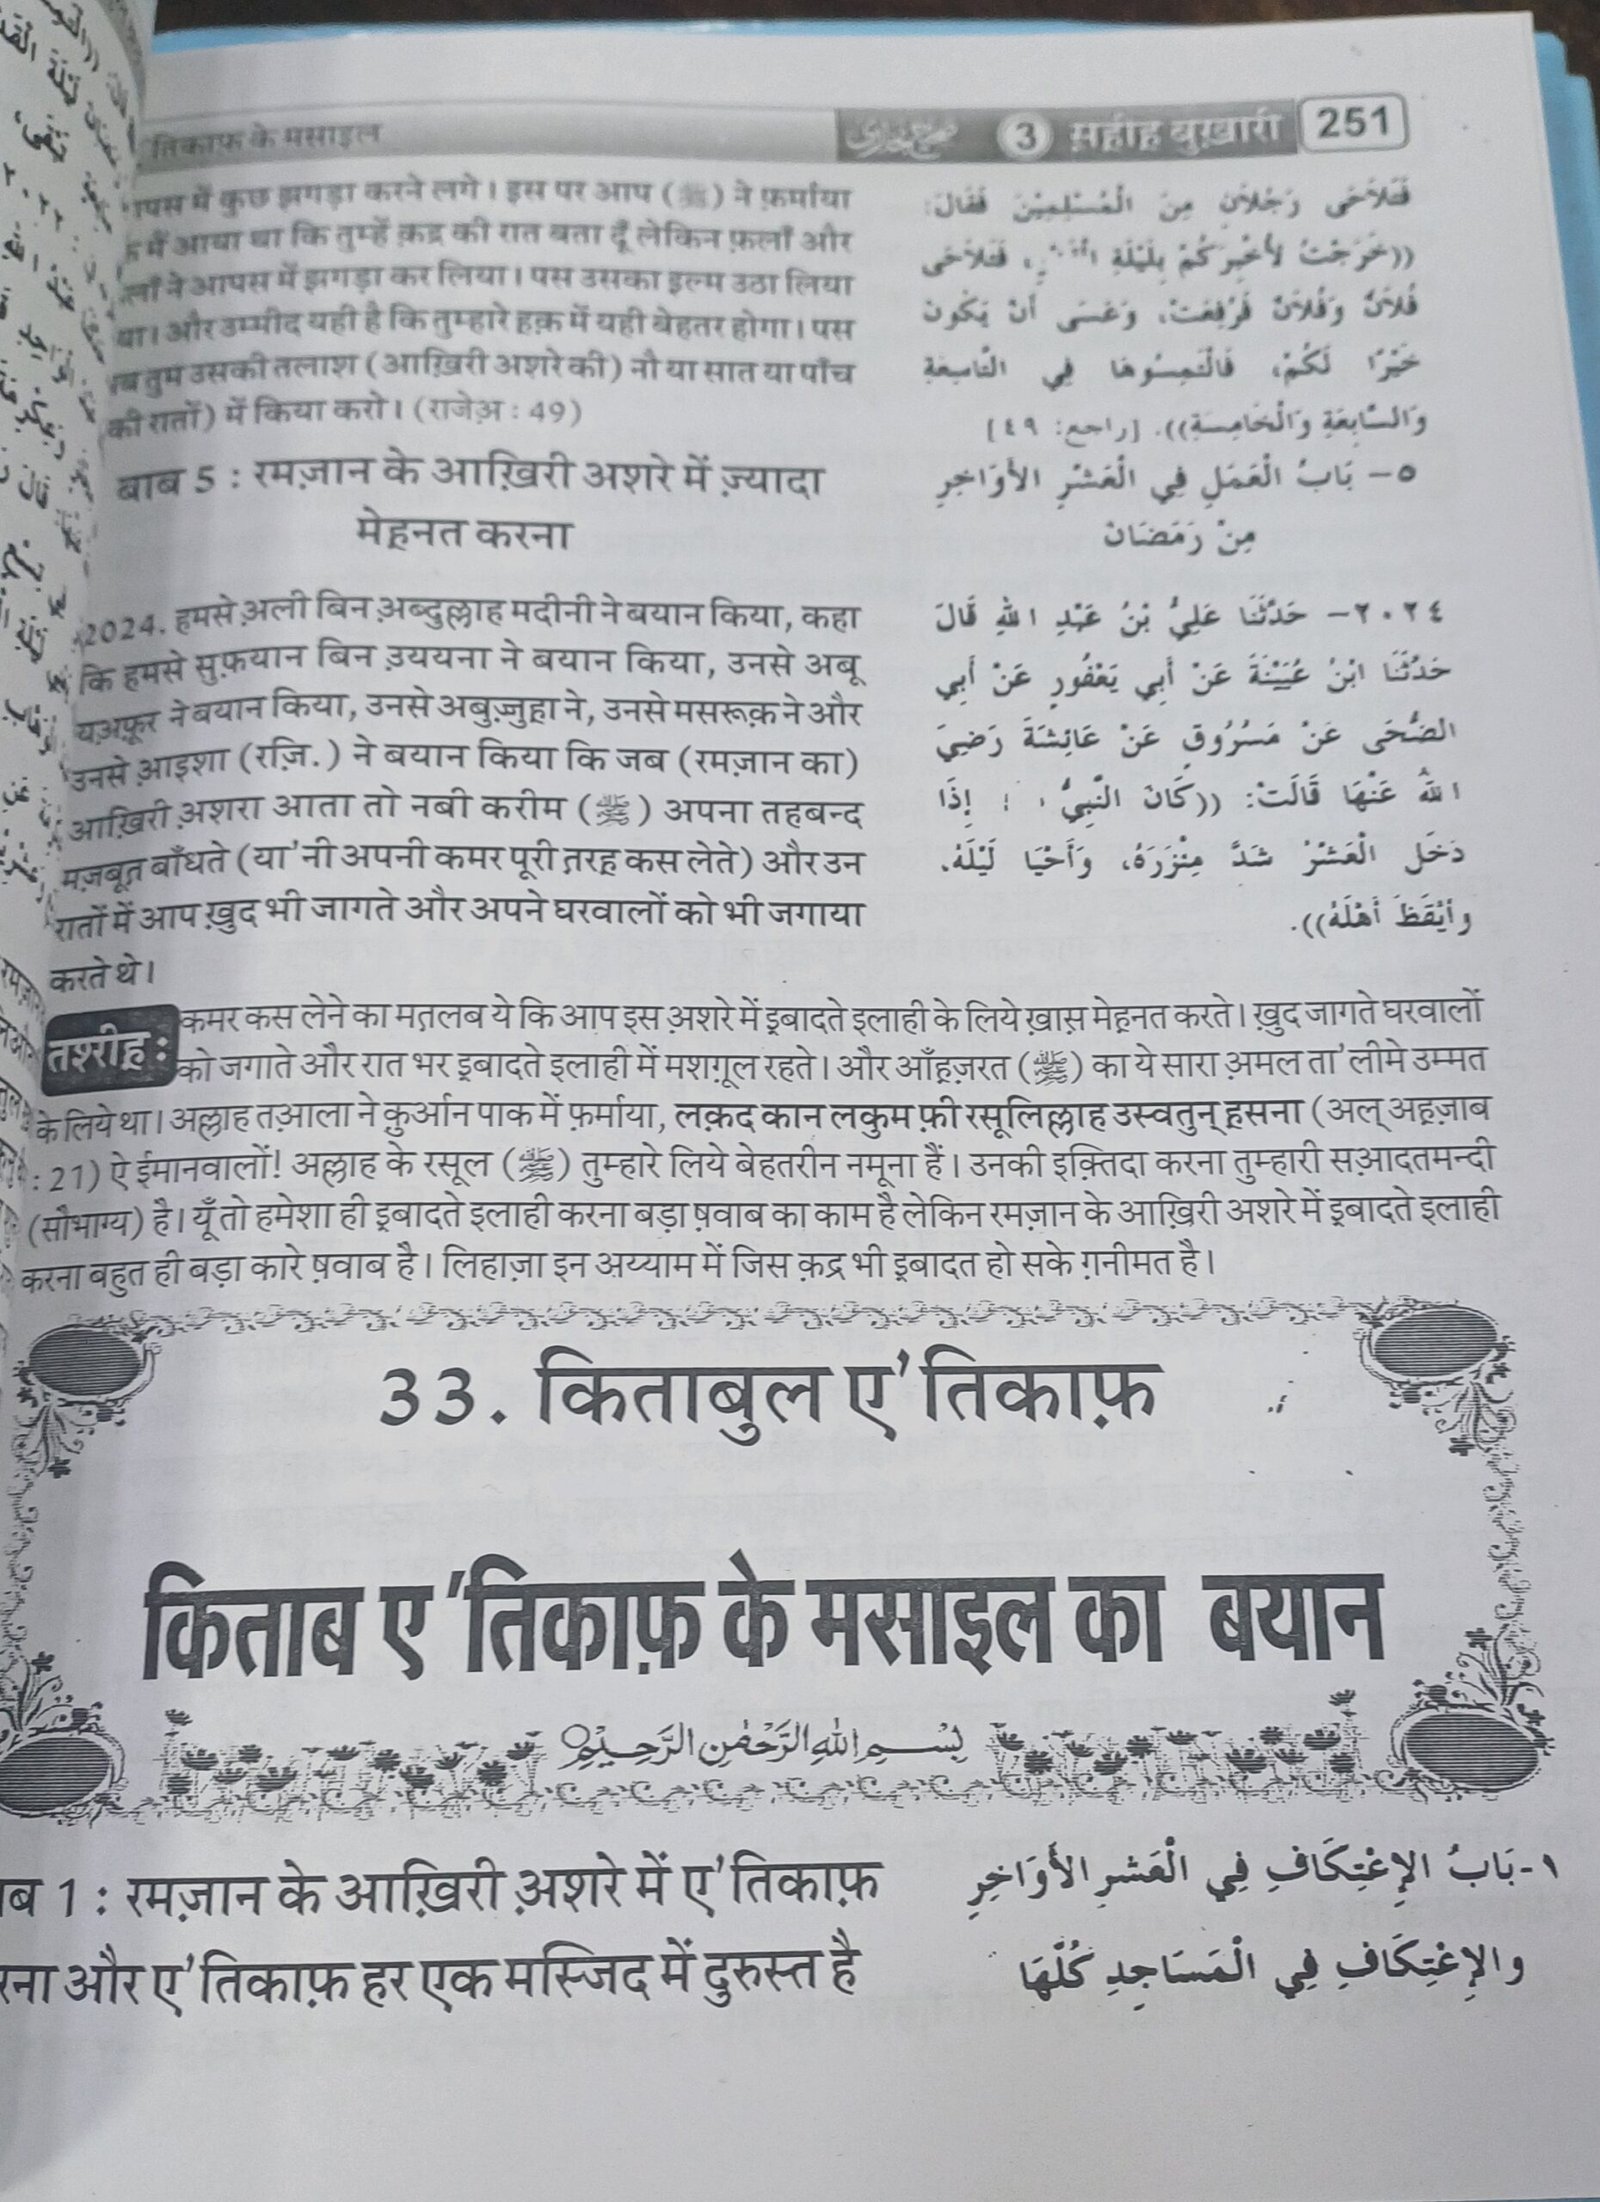 तिकाफ़ के मसाइल
3 सहीह बुख़ारी 251
में कुछ झगड़ा करने लगे। इस पर आप (ﷺ) ने फ़र्माया
में आया था कि तुम्हें क़द्र की रात बता दूँ लेकिन फ़लाँ और
ने आपस में झगड़ा कर लिया। पस उसका इल्म उठा लिया
और उम्मीद यही है कि तुम्हारे हक़ में यही बेहतर होगा। पस
तुम उसकी तलाश (आख़िरी अशरे की) नौ या सात या पाँच
की रातों) में किया करो। (राजेअ़ : 49)
فَتَلاَحَى رَجُلاَنِ مِنَ الْمُسْلِمِيْنَ فَقَالَ:
((خَرَجْتُ لأُخْبِرَكُمْ بِلَيْلَةِ فَتَلاَحَى
فُلاَنٌ وَفُلاَنٌ فَرُفِعَتْ، وَعَسَى أَنْ يَكُونَ
خَيْرًا لَكُمْ، فَالْتَمِسُوهَا فِي التَّاسِعَةِ
وَالسَّابِعَةِ وَالْخَامِسَةِ)). [راجع: ٤٩]
बाब 5 : रमज़ान के आख़िरी अशरे में ज़्यादा
मेह़नत करना
٥- بَابُ الْعَمَلِ فِي الْعَشْرِ الأَوَاخِرِ
مِنْ رَمَضَانَ
2024. हमसे अ़ली बिन अ़ब्दुल्लाह मदीनी ने बयान किया, कहा
कि हमसे सुफ़यान बिन उ़ययना ने बयान किया, उनसे अबू
यअ़फ़ूर ने बयान किया, उनसे अबुज़्ज़ुह़ा ने, उनसे मसरूक़ ने और
उनसे आ़इशा (रज़ि.) ने बयान किया कि जब (रमज़ान का)
आख़िरी अ़शरा आता तो नबी करीम (ﷺ) अपना तहबन्द
मज़बूत़ बाँधते (या'नी अपनी कमर पूरी त़रह़ कस लेते) और उन
रातों में आप ख़ुद भी जागते और अपने घरवालों को भी जगाया
करते थे।
٢٠٢٤- حَدَّثَنَا عَلِيُّ بْنُ عَبْدِ اللهِ قَالَ
حَدَّثَنَا ابْنُ عُيَيْنَةَ عَنْ أَبِي يَعْفُورٍ عَنْ أَبِي
الضُّحَى عَنْ مَسْرُوقٍ عَنْ عَائِشَةَ رَضِيَ
اللهُ عَنْهَا قَالَتْ: ((كَانَ النَّبِيُّ إِذَا
دَخَلَ الْعَشْرُ شَدَّ مِئْزَرَهُ، وَأَحْيَا لَيْلَهُ،
وَأَيْقَظَ أَهْلَهُ)).
तश्रीह़ : कमर कस लेने का मत़लब ये कि आप इस अ़शरे में इ़बादते इलाही के लिये ख़ास़ मेह़नत करते। ख़ुद जागते घरवालों
को जगाते और रात भर इ़बादते इलाही में मशग़ूल रहते। और आँह़ज़रत (ﷺ) का ये सारा अ़मल ता'लीमे उम्मत
के लिये था। अल्लाह तआ़ला ने क़ुर्आन पाक में फ़र्माया, लक़द कान लकुम फ़ी रसूलिल्लाह उस्वतुन् ह़सना (अल् अह़ज़ाब
: 21) ऐ ईमानवालों! अल्लाह के रसूल (ﷺ) तुम्हारे लिये बेहतरीन नमूना हैं। उनकी इक़्तिदा करना तुम्हारी सआ़दतमन्दी
(सौभाग्य) है। यूँ तो हमेशा ही इ़बादते इलाही करना बड़ा ष़वाब का काम है लेकिन रमज़ान के आख़िरी अशरे में इ़बादते इलाही
करना बहुत ही बड़ा कारे ष़वाब है। लिहाज़ा इन अय्याम में जिस क़द्र भी इ़बादत हो सके ग़नीमत है।
33. किताबुल ए'तिकाफ़
किताब ए'तिकाफ़ के मसाइल का बयान
بِسْمِ اللهِ الرَّحْمٰنِ الرَّحِيْمِ
ब 1 : रमज़ान के आख़िरी अ़शरे में ए'तिकाफ़
रना और ए'तिकाफ़ हर एक मस्जिद में दुरुस्त है
١- بَابُ الاِعْتِكَافِ فِي الْعَشْرِ الأَوَاخِرِ
والاِعْتِكَافِ فِي الْمَسَاجِدِ كُلِّهَا